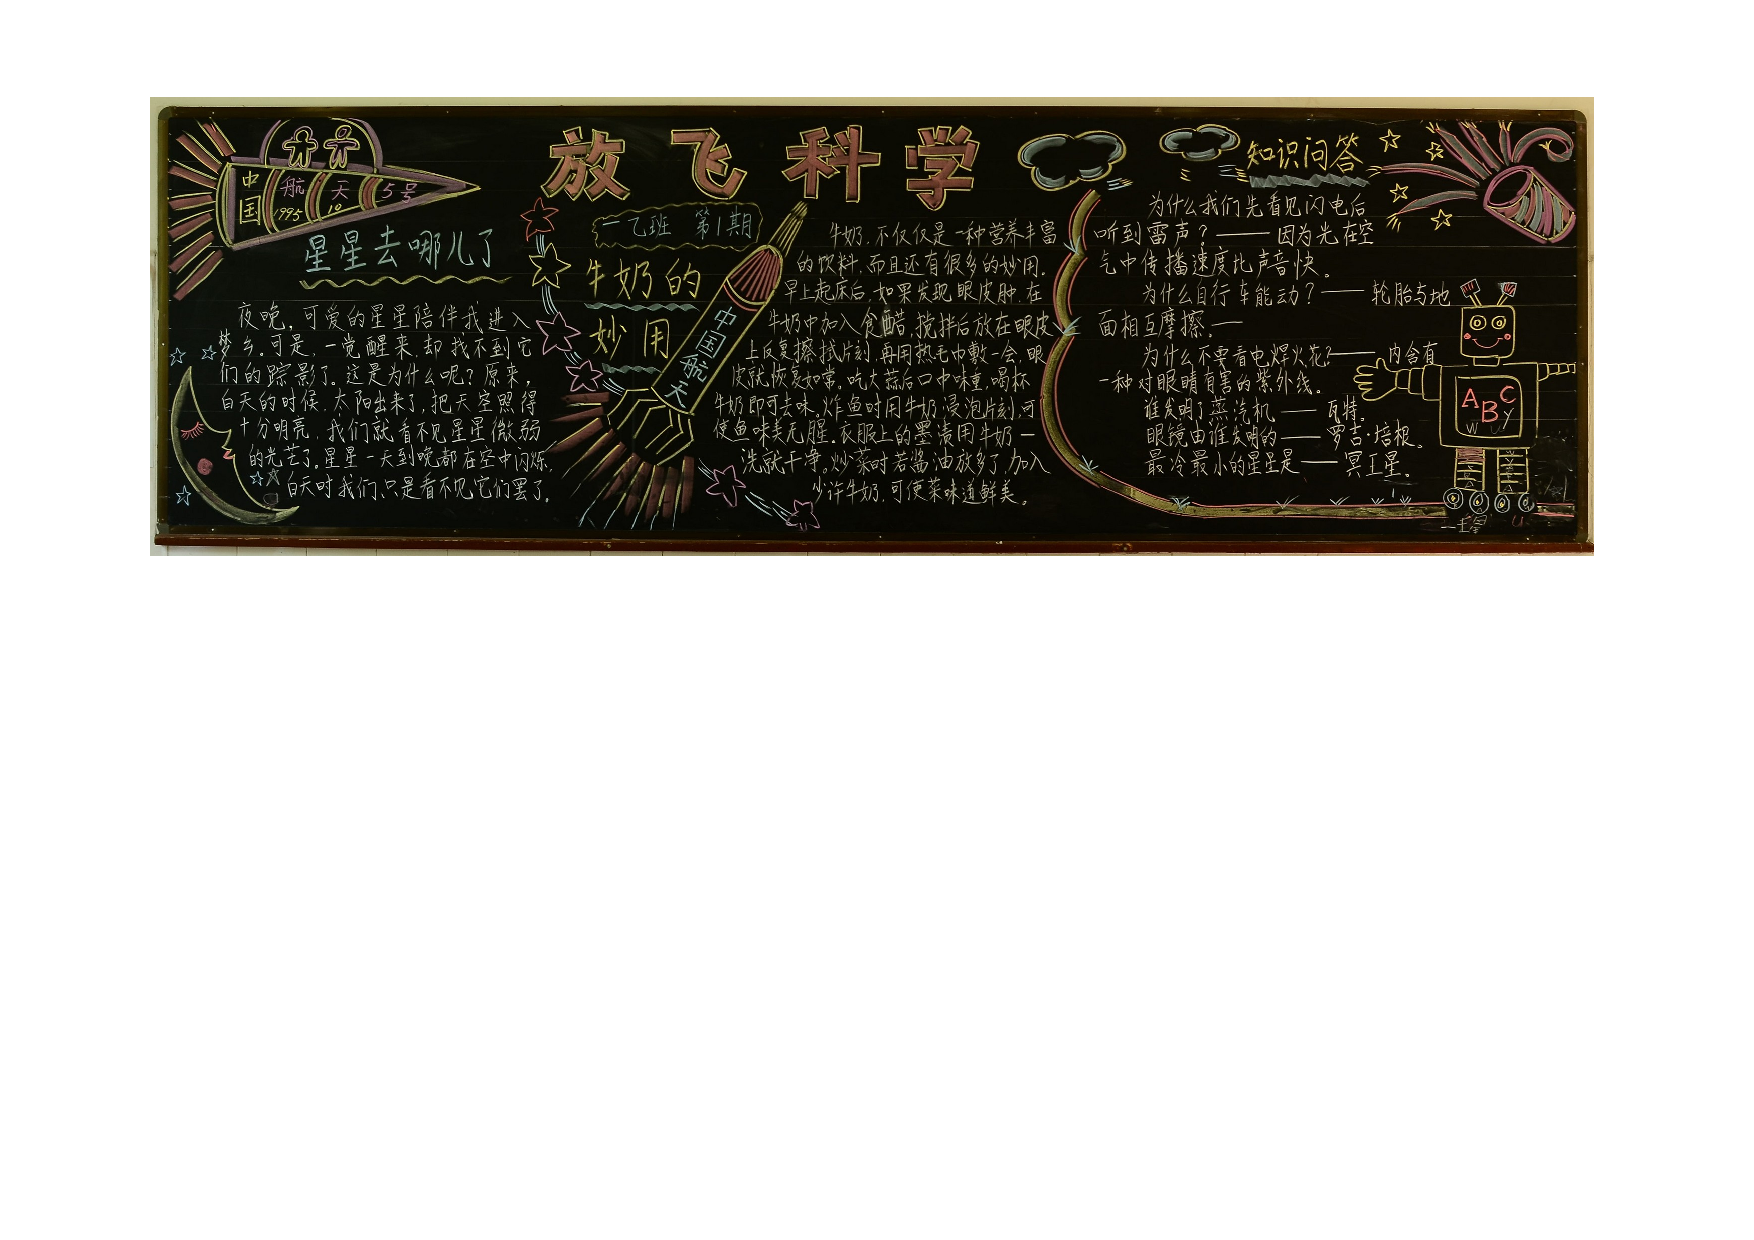 放飞科学
中国
航天5号
1995 10
星星去哪儿了
夜晚,可爱的星星陪伴我进入
梦乡。可是,一觉醒来,却找不到它
们的踪影了。这是为什么呢?原来,
白天的时候,太阳出来了,把天空照得
十分明亮,我们就看不见星星微弱
的光芒了。星星一天到晚都在空中闪烁,
白天时我们只是看不见它们罢了。
一乙班 第1期
牛奶的
妙用
中国航天
牛奶,不仅仅是一种营养丰富
的饮料,而且还有很多的妙用。
早上起床后,如果发现眼皮肿,在
牛奶中加入食醋,搅拌后放在眼皮
上反复擦拭片刻,再用热毛巾敷一会,眼
皮就恢复如常。吃大蒜后口中味重,喝杯
牛奶即可去味。炸鱼时用牛奶浸泡片刻,可
使鱼味美无腥。衣服上的墨渍用牛奶一
洗就干净。炒菜时若酱油放多了,加入
少许牛奶,可使菜味道鲜美。
知识问答
为什么我们先看见闪电后
听到雷声?——因为光在空
气中传播速度比声音快。
为什么自行车能动?——轮胎与地
面相互摩擦。——
为什么不要看电焊火花?——内含有
一种对眼睛有害的紫外线。
谁发明了蒸汽机——瓦特。
眼镜由谁发明的——罗吉·培根。
最冷最小的星星是——冥王星。
A B C
W y